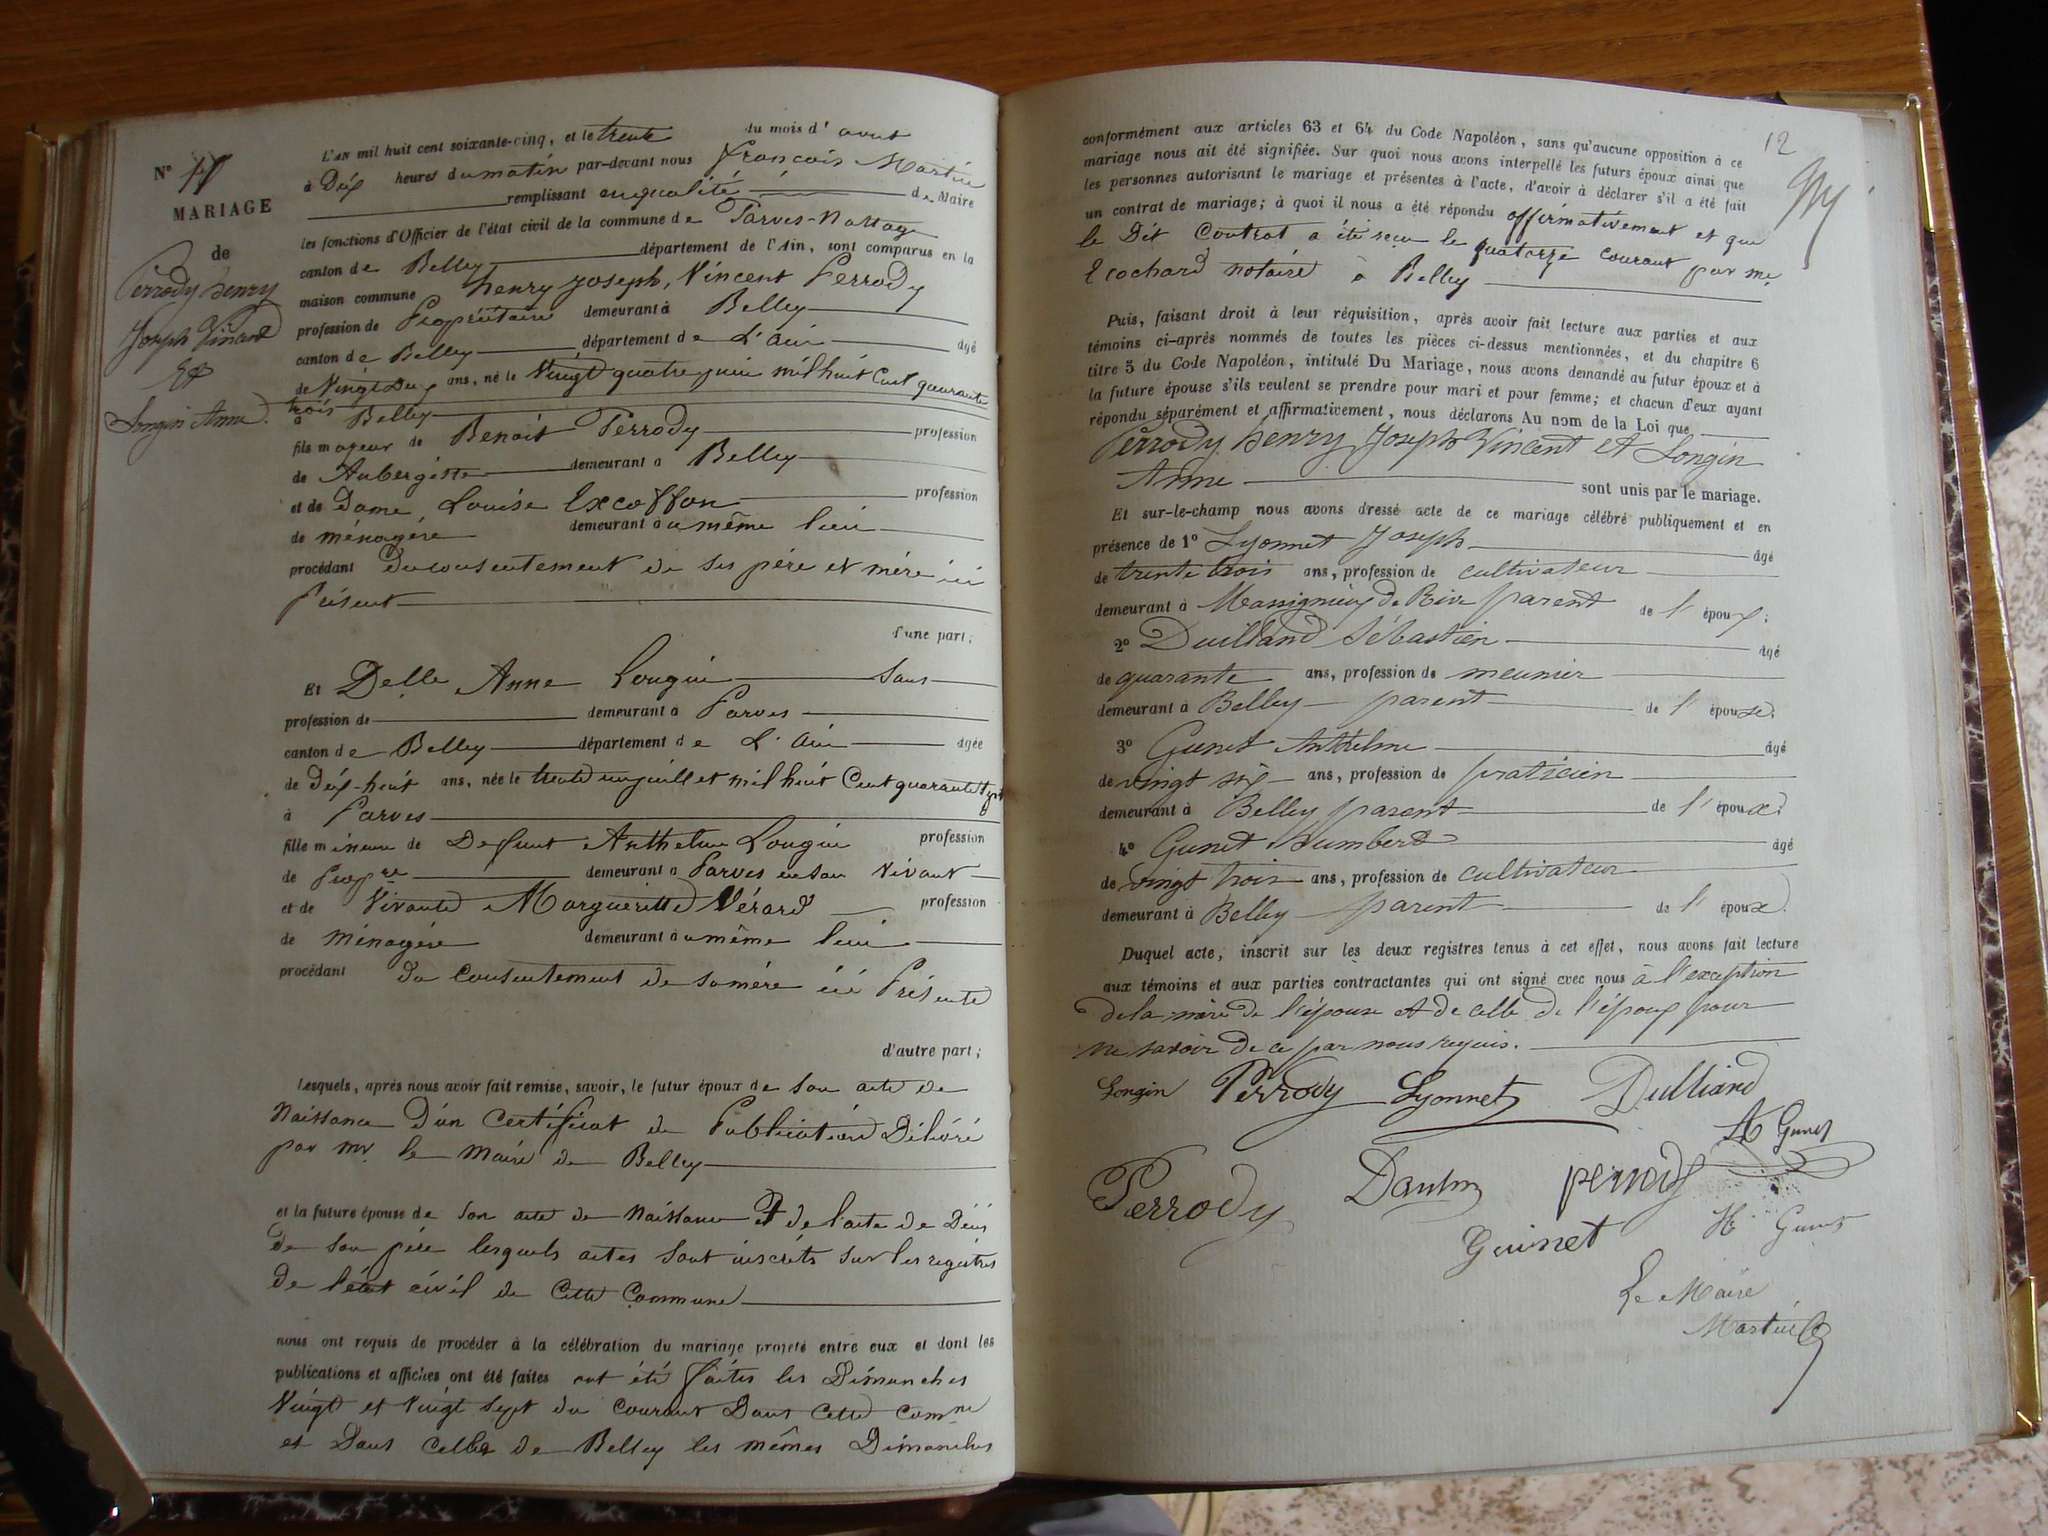 N° 11
MARIAGE
de
Perrody henry
Joseph Vincent
Et
Longin Anne.
L'AN mil huit cent soixante-cinq, et le trente du mois d' aout
à Dix heures du matin par-devant nous François Martin
remplissant en qualité de Maire
les fonctions d'Officier de l'état civil de la commune de Parves-Nattage
canton de Belley département de l'Ain, sont comparus en la
maison commune henry Joseph, Vincent Perrody
profession de Propriétaire demeurant à Belley
canton de Belley département de L'Ain âgé
de Vingt Deux ans, né le Vingt quatre juin mil huit Cent quarante
trois
à Belley
fils majeur de Benoit Perrody profession
de Aubergiste demeurant à Belley
et de Dame Louise Excoffon profession
de ménagère demeurant au même lieu
procédant du consentement de ses père et mère ici
Présent
d'une part;
Et Delle Anne Longin Sans
profession de demeurant à Parves
canton de Belley département de L'Ain âgée
de Dix-huit ans, née le trente un juillet mil huit Cent quarante sept
à Parves
fille mineure de Defunt Anthelme Longin profession
de Propre demeurant à Parves en son Vivant
et de Vivante Margueritte Vérard profession
de Ménagère demeurant au même lieu
procédant du consentement de sa mère ici Présente
d'autre part;
Lesquels, après nous avoir fait remise, savoir, le futur époux de son acte de
Naissance D'un Certificat de Publication Délivré
par mr le Maire de Belley
et la future épouse de son acte de Naissance Et de l'acte de Déces
De son père lesquels actes sont inscrits sur les registres
De l'état civil de Cette Commune
nous ont requis de procéder à la célébration du mariage projeté entre eux et dont les
publications et affiches ont été faites ont été faites les Dimanches
Vingt et Vingt sept du courant Dans Cette Comne
et Dans Celle de Belley les mêmes Dimanches
12
conformément aux articles 63 et 64 du Code Napoléon, sans qu'aucune opposition à ce
mariage nous ait été signifiée. Sur quoi nous avons interpellé les futurs époux ainsi que
les personnes autorisant le mariage et présentes à l'acte, d'avoir à déclarer s'il a été fait
un contrat de mariage; à quoi il nous a été répondu affirmativement et que
le Dit Contrat a été reçu le quatorze courant par me
Ecochard notaire à Belley
Puis, faisant droit à leur réquisition, après avoir fait lecture aux parties et aux
témoins ci-après nommés de toutes les pièces ci-dessus mentionnées, et du chapitre 6
titre 5 du Code Napoléon, intitulé Du Mariage, nous avons demandé au futur époux et à
la future épouse s'ils veulent se prendre pour mari et pour femme; et chacun d'eux ayant
répondu séparément et affirmativement, nous déclarons Au nom de la Loi que
Perrody henry Joseph Vincent et Longin
Anne sont unis par le mariage.
Et sur-le-champ nous avons dressé acte de ce mariage célébré publiquement et en
présence de 1° Lyonnet Joseph âgé
de trente trois ans, profession de cultivateur
demeurant à Massignieu de Rive parent de l'époux;
2° Duilland Sébastien âgé
de quarante ans, profession de meunier
demeurant à Belley parent de l'épouse;
3° Gunet Anthelme âgé
de vingt six ans, profession de praticien
demeurant à Belley parent de l'époux;
4° Gunet Humbert âgé
de vingt trois ans, profession de cultivateur
demeurant à Belley parent de l'époux.
Duquel acte, inscrit sur les deux registres tenus à cet effet, nous avons fait lecture
aux témoins et aux parties contractantes qui ont signé avec nous à l'exception
de la mère de l'épouse et de celle de l'époux pour
ne savoir de ce par nous requis.
Longin Perrody Lyonnet Dulliand
A Gunet
Perrody perrody
Guinet H Gunet
Le Maire
Martin